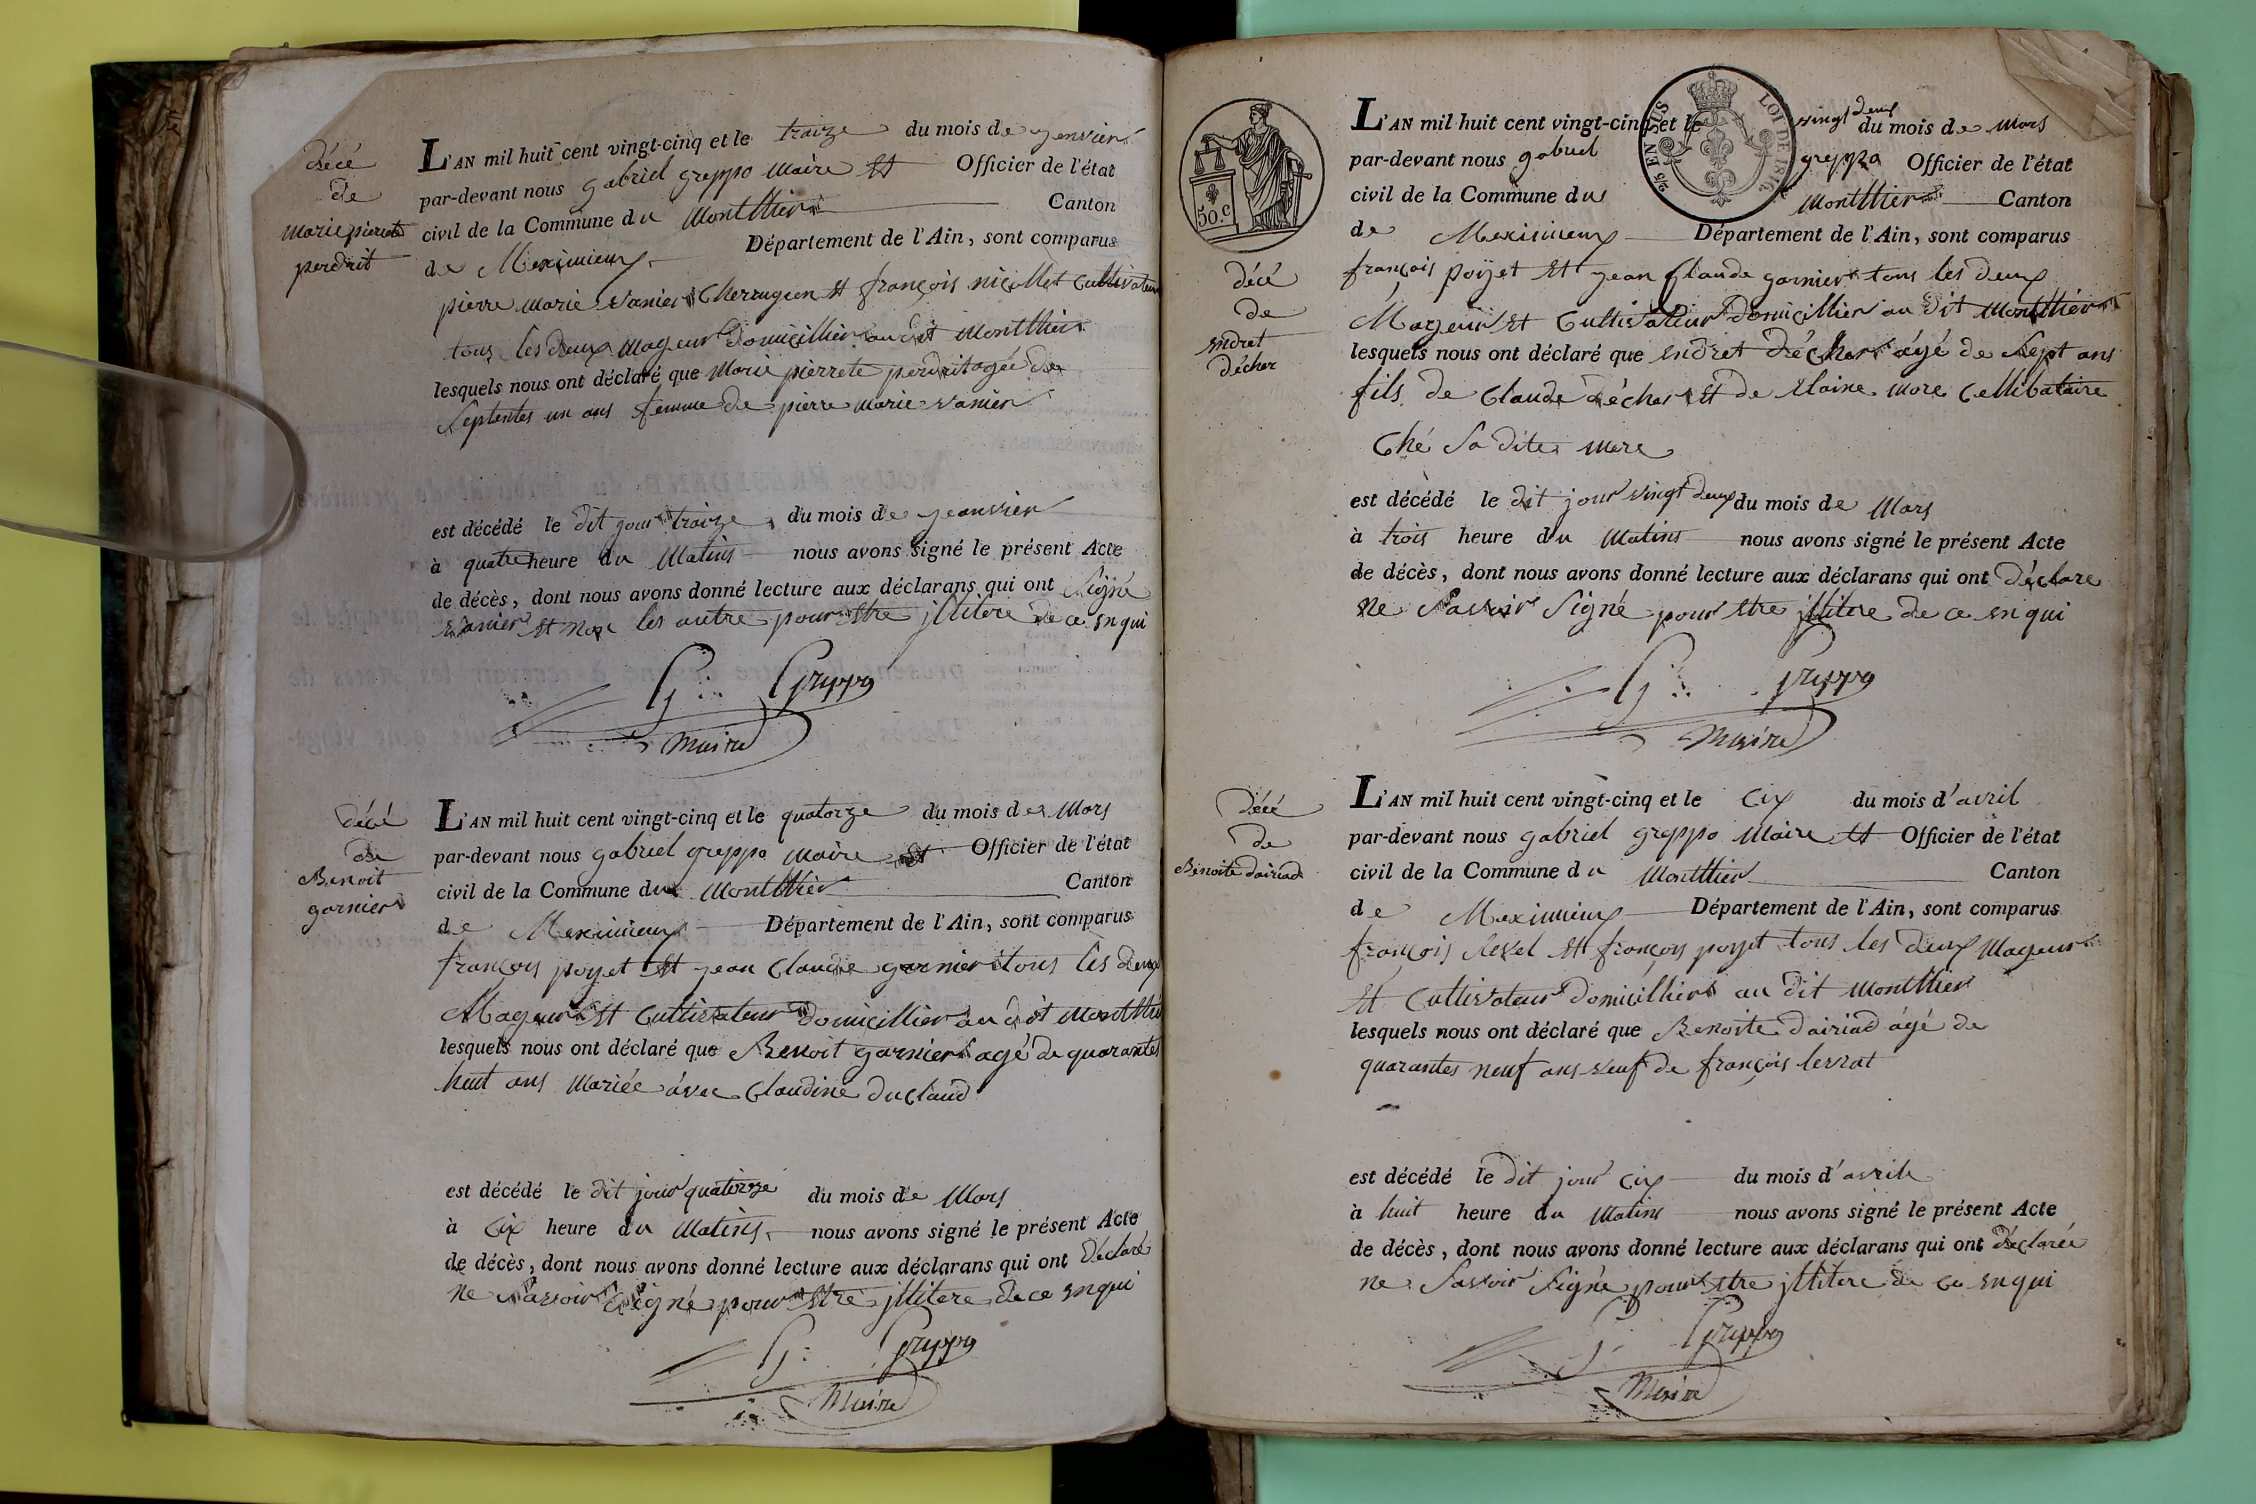 décé
de
marie pierrete
perdrit
L'AN mil huit cent vingt-cinq et le traize du mois de jenvier
par-devant nous gabriel greppo maire et Officier de l'état
civil de la Commune du Montthier Canton
de Meximieux Département de l'Ain, sont comparus
pierre marie vanier Cherrugien et françois nicollet Cultivateur
tous les deux mageur domicillier audit Montthier
lesquels nous ont déclaré que Marie pierrete perdrit agée de
septentes un ans femme de pierre marie vanier
est décédé le dit jour traize du mois de jeanvier
à quatre heure du Matins nous avons signé le présent Acte
de décès, dont nous avons donné lecture aux déclarans qui ont signé
vanier et non les autre pour etre jllitere de ce enqui
G: Greppo
Maire
décé
de
Benoit
garnier
L'AN mil huit cent vingt-cinq et le quatorze du mois de Mars
par-devant nous gabriel greppo maire et Officier de l'état
civil de la Commune du Montthier Canton
de Meximieux Département de l'Ain, sont comparus
françois poyet et jean Claude garnier tous les deux
Mageur et Cultivateur domicillier au dit Montthier
lesquels nous ont déclaré que Benoit garnier agé de quarantes
huit ans Mariée avec Claudine duclaud
est décédé le dit jour quatorze du mois de Mars
à Cix heure du Matins nous avons signé le présent Acte
de décès, dont nous avons donné lecture aux déclarans qui ont déclaré
ne savoir signé pour etre jllitere de ce enqui
G: Greppo
Maire
50.c
EN SUS
LOI DE 1816.
décé
de
endret
décher
L'AN mil huit cent vingt-cinq et le vingt deux du mois de Mars
par-devant nous gabriel greppo Officier de l'état
civil de la Commune du Montthier Canton
de Meximieux Département de l'Ain, sont comparus
françois poyet et jean Claude garnier tous les deux
Mageur et Cultivateur domicillier au dit Montthier
lesquels nous ont déclaré que endret décher âgé de sept ans
fils de Claude décher et de Claine More Cellibataire
Ché sa dite mere
est décédé le dit jour vingt deux du mois de Mars
à trois heure du Matins nous avons signé le présent Acte
de décès, dont nous avons donné lecture aux déclarans qui ont déclare
ne savoir signé pour etre jllitere de ce enqui
G: Greppo
Maire
décé
de
Benoite dairiad
L'AN mil huit cent vingt-cinq et le Cix du mois d'avril
par-devant nous gabriel greppo Maire et Officier de l'état
civil de la Commune du Montthier Canton
de Meximieux Département de l'Ain, sont comparus
françois revel et françois poyet tous les deux Mageur
et Cultivateur domicillier au dit Montthier
lesquels nous ont déclaré que Benoite dairiad âgé de
quarantes neuf ans veuf de françois levrat
est décédé le dit jour Cix du mois d'avril
à huit heure du Matins nous avons signé le présent Acte
de décès, dont nous avons donné lecture aux déclarans qui ont déclarée
ne savoir signé pour etre jllitere de ce enqui
G: Greppo
Maire